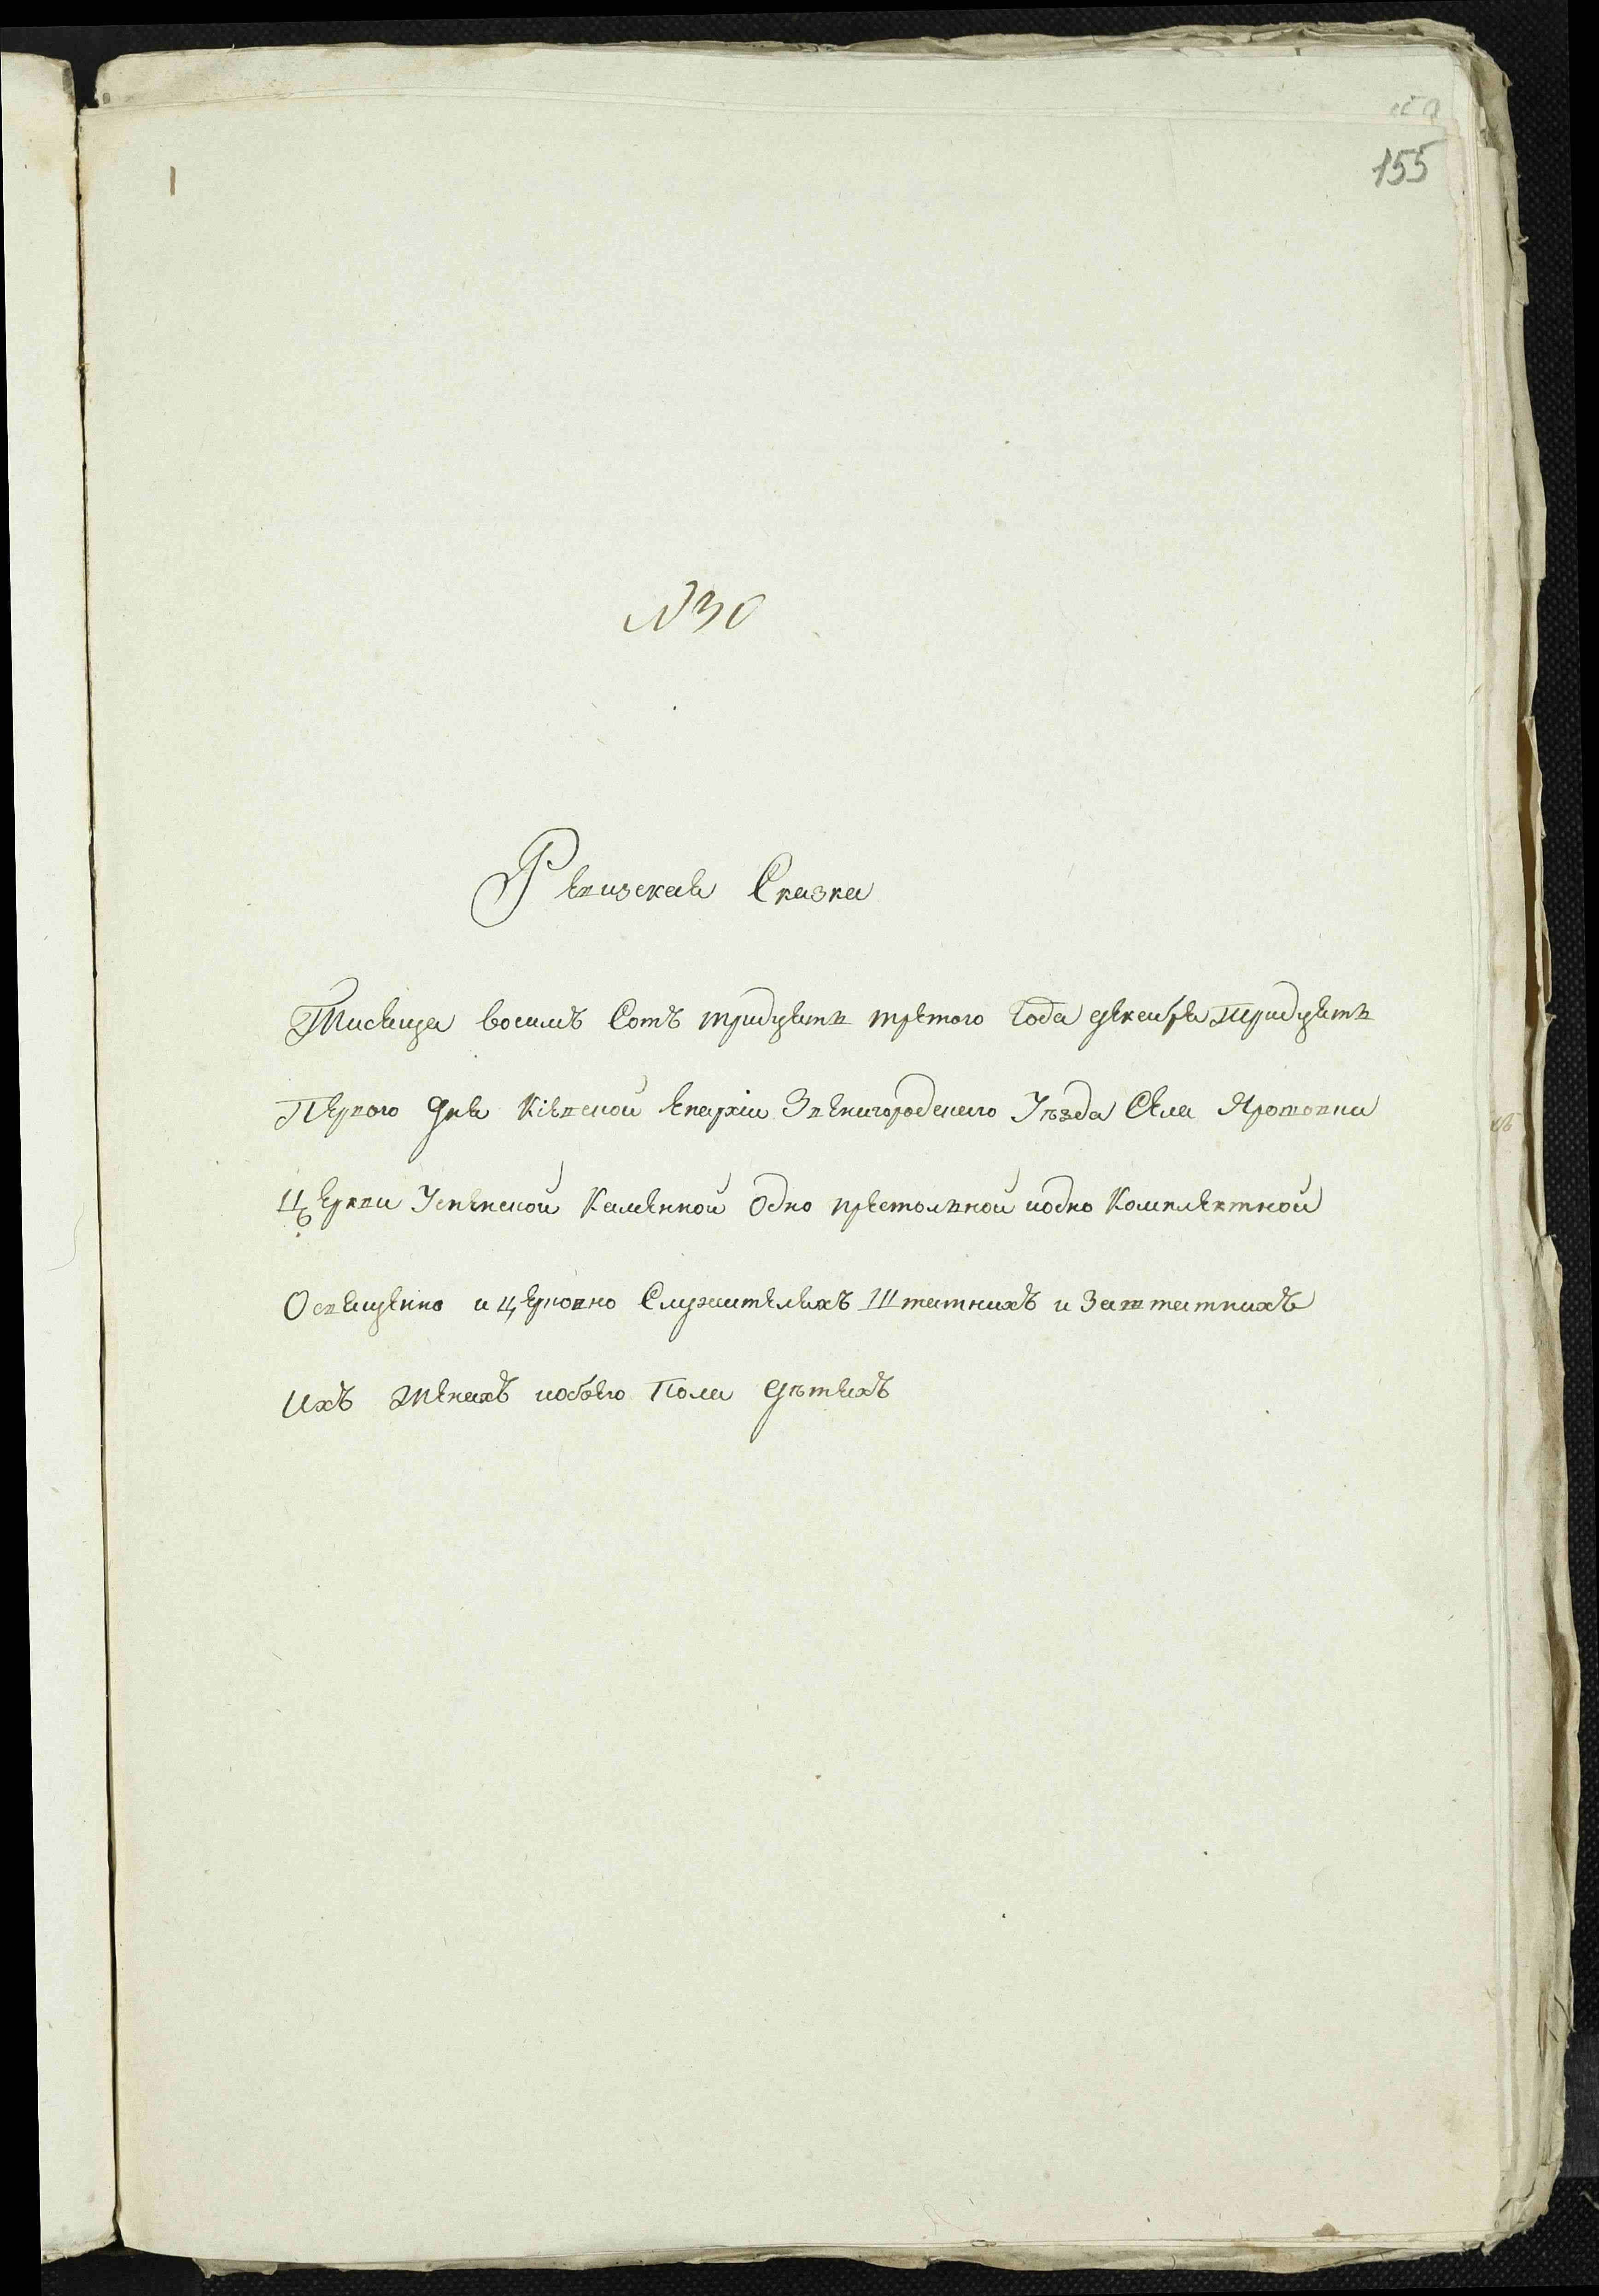 155
N 30
Ревизская Сказка
Тисяща восемъ Сотъ тридцять третого Года декабря Тридцять
Первого дня Кіевской Епархіи Звенигородского Уѣзда Села Яротовки
Церкви Успенской Каменной Одно престольной иодно Комплектной
Освященно и церковно Служителяхъ Штатнихъ и Заштатнихъ
Ихъ Женахъ иобоего Пола дѣтяхъ